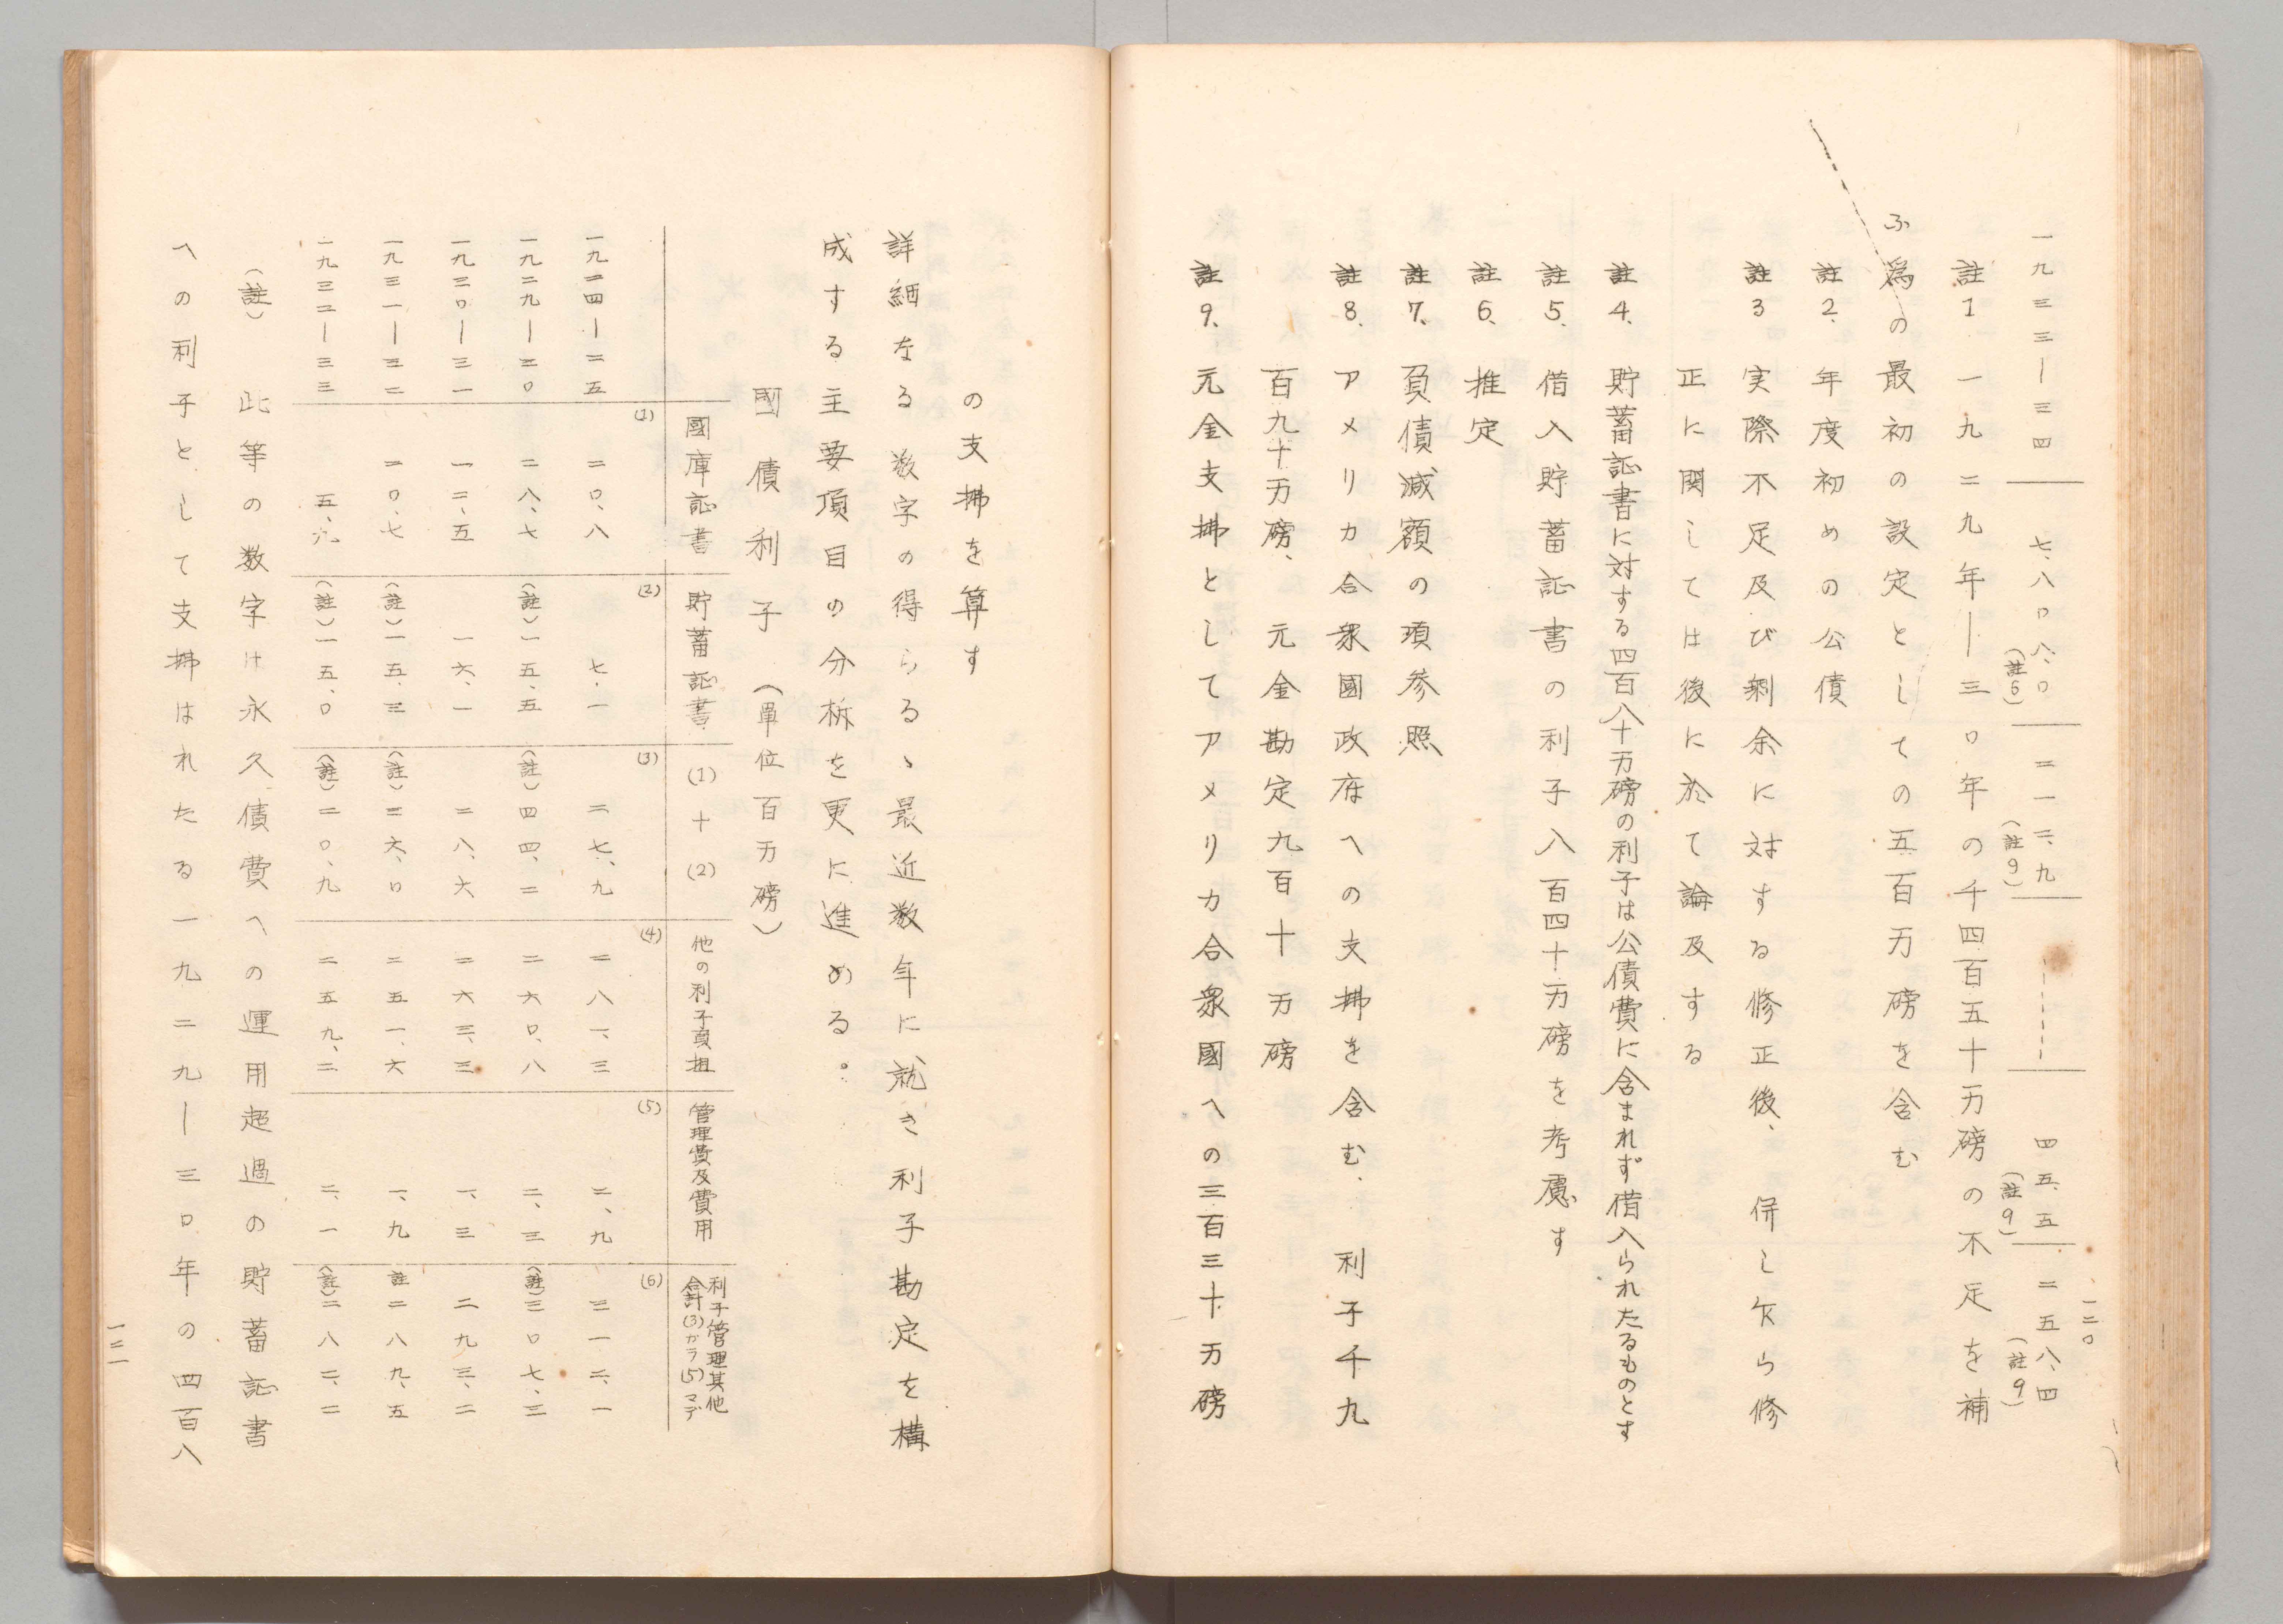 一二〇
一九三三―三四 七、八〇八、〇(註6) 二一二、九(註9) ―――― 四五、五(註9) 二五八、四(註9)
註1 一九二九年―三〇年の千四百五十万磅の不足を補
ふ為の最初の設定としての五百万磅を含む
註2. 年度初めの公債
註3 実際不足及び剰余に対する修正後、 併し乍ら修
正に関しては後に於て論及する
註4. 貯蓄証書に対する四百八十万磅の利子は公債費に含まれず借入られたるものとす
註5. 借入貯蓄証書の利子八百四十万磅を考慮す
註6. 推定
註7. 負債減額の項参照
註8. アメリカ合衆國政府への支拂を含む. 利子千九
百九十万磅、 元金勘定九百十万磅
註9. 元金支拂としてアメリカ合衆國への三百三十万磅
の支拂を算す
詳細なる数字の得らるゝ最近数年に就き利子勘定を構
成する主要項目の分析を更に進める。
國債利子 (單位百万磅)
國庫証書 貯蓄証書 (1)+(2) 他の利子負担 管理費及費用 利子管理其他合計(3)カラ(5)マデ
(1) (2) (3) (4) (5) (6)
一九二四―二五 二〇、八 七、一 二七、九 二八一、三 二、九 三一二、一
一九二九―三〇 二八、七 (註)一五、五 (註)四四、二 二六〇、八 二、三 (註)三〇七、三
一九三〇―三一 一二、五 一六、一 二八、六 二六三、三 一、三 二九三、二
一九三一―三二 一〇、七 (註)一五、三 (註)二六、〇 二五一、六 一、九 註二八九、五
一九三二―三三 五、九 (註)一五、〇 (註)二〇、九 二五九、二 二、一 (註)二八二、二
(註) 此等の数字は永久債費への運用超過の貯蓄証書
への利子として支拂はれたる一九二九―三〇年の四百八
一二一